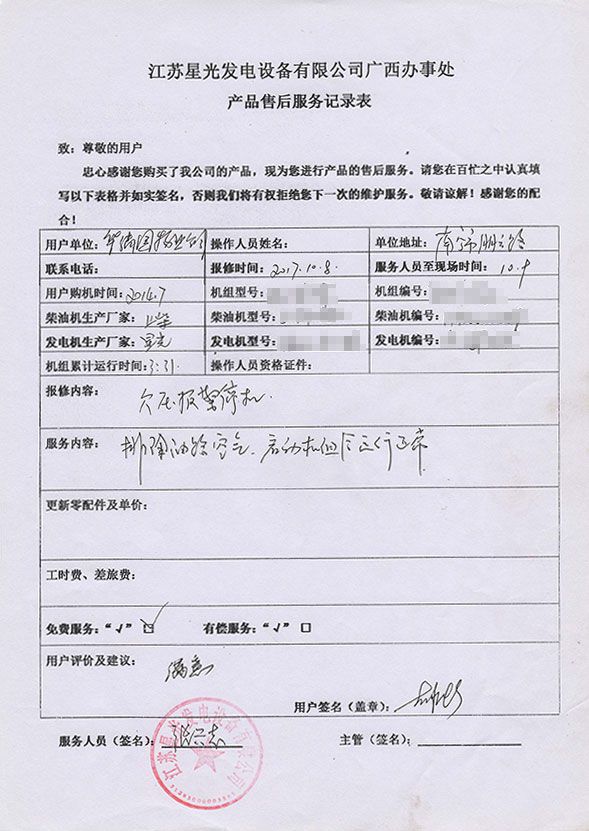 江苏星光发电设备有限公司广西办事处
产品售后服务记录表
致：尊敬的用户
忠心感谢您购买了我公司的产品，现为您进行产品的售后服务。请您在百忙之中认真填
写以下表格并如实签名，否则我们将有权拒绝您下一次的维护服务。敬请谅解！感谢您的配
合！
用户单位： 操作人员姓名： 单位地址：
联系电话： 报修时间：2017.10.8. 服务人员至现场时间：10.9
用户购机时间：2014.7 机组型号： 机组编号：
柴油机生产厂家：上柴 柴油机型号： 柴油机编号：
发电机生产厂家：星光 发电机型号： 发电机编号：
机组累计运行时间：3:31. 操作人员资格证件：
报修内容：
欠压报警停机.
服务内容：
排除油路空气.启动机组今运行正常
更新零配件及单价：
工时费、差旅费：
免费服务：“√”☑ 有偿服务：“√”□
用户评价及建议：满意
用户签名（盖章）：
服务人员（签名）： 主管（签名）：
江苏星光发电设备有限公司